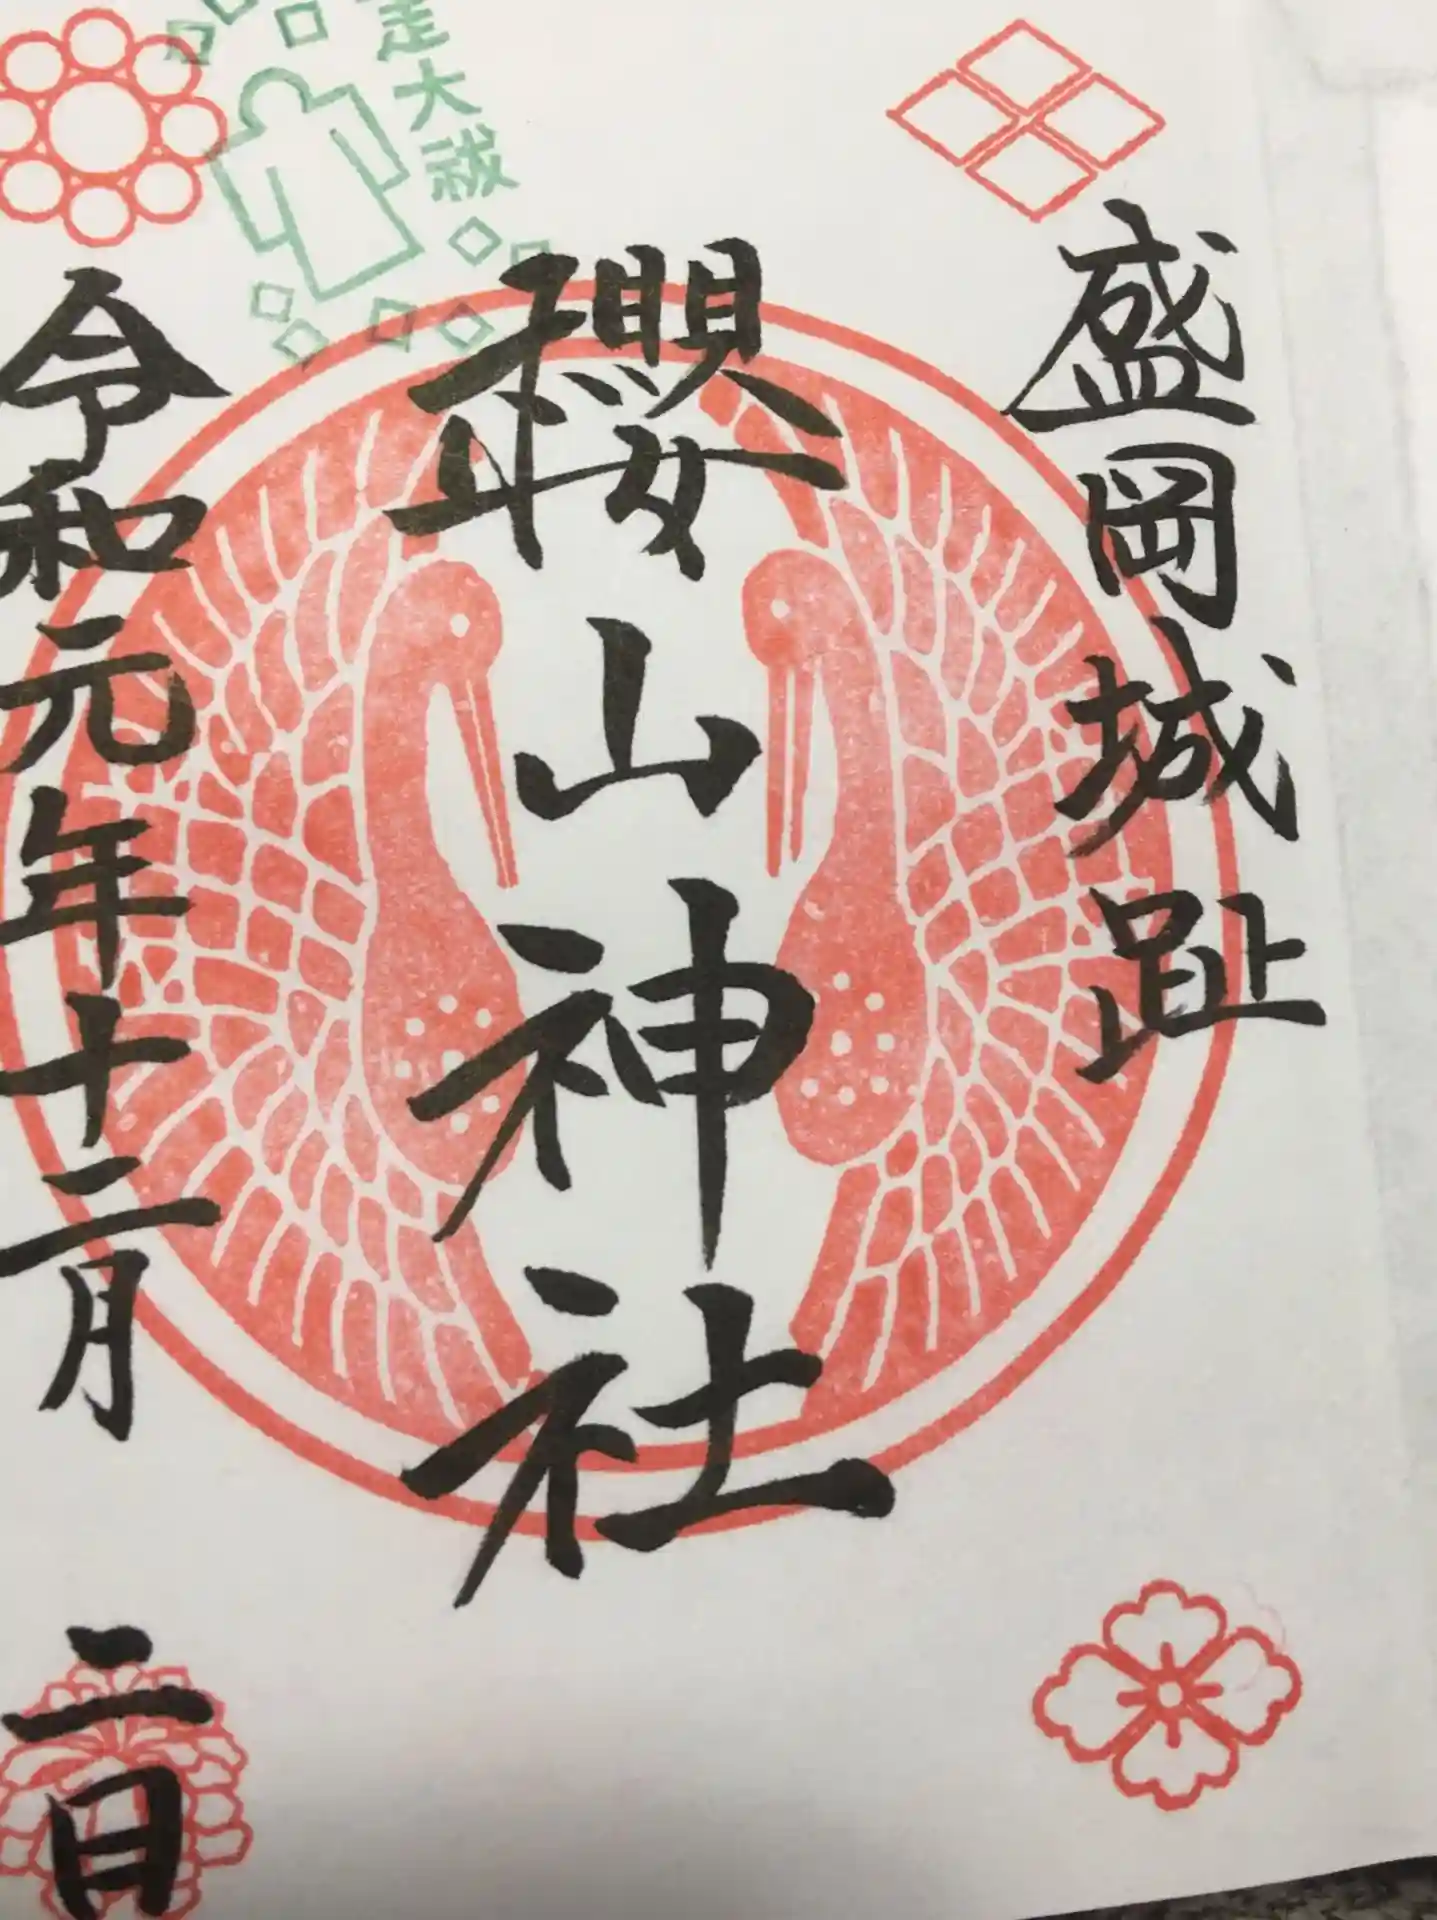 盛岡城趾
櫻山神社
走大祓
令和元年十二月二日